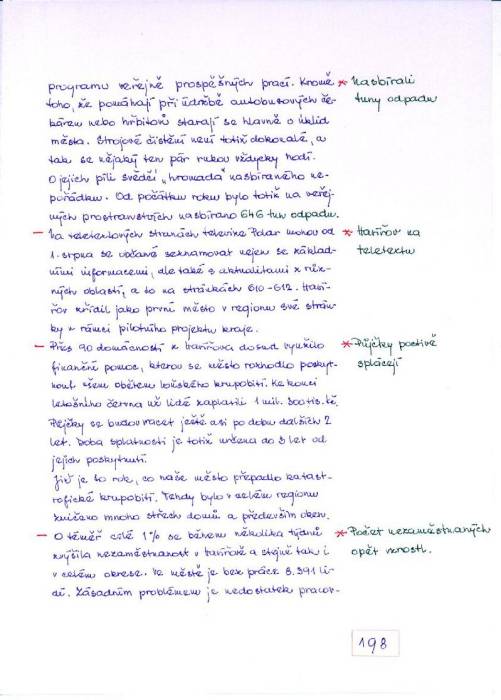 programu veřejně prospěšných prací. Kromě
toho, že pomáhají při údržbě autobusových če-
káren nebo hřbitovů starají se hlavně o úklid
města. Strojové čištění není totiž dokonalé, a
tak se nějaký ten pár rukou vždycky hodí.
O jejich píli svědčí „hromada" nasbíraného ne-
pořádku. Od počátku roku bylo totiž na veřej-
ných prostranstvích nasbíráno 646 tun odpadu.
* Nasbírali
tuny odpadu
– Na teletextových stranách televize Polar mohou od
1. srpna se občané seznamovat nejen se základ-
ními informacemi, ale také s aktualitami z růz-
ných oblastí, a to na stránkách 610-612. Haví-
řov zřídil jako první město v regionu své strán-
ky v rámci pilotního projektu kraje.
* Havířov na
teletextu
– Přes 90 domácností z Havířova dosud využilo
finanční pomoc, kterou se město rozhodlo poskyt-
nout všem obětem loňského krupobití. Ke konci
letošního června už lidé zaplatili 1 mil. 300 tis. kč.
Půjčky se budou vracet ještě asi po dobu dalších 2
let. Doba splatnosti je totiž určena do 3 let od
jejich poskytnutí.
Již je to rok, co naše město přepadlo katast-
rofické krupobití. Tehdy bylo v celém regionu
zničeno mnoho střech domů a především oken.
* Půjčky poctivě
splácejí
– O téměř celé 1% se během několika týdnů
zvýšila nezaměstnanost v Havířově a stejně tak i
v celém okrese. Ve městě je bez práce 8.391 li-
dí. Zásadním problémem je nedostatek pracov-
* Počet nezaměstnaných
opět vzrostl.
198